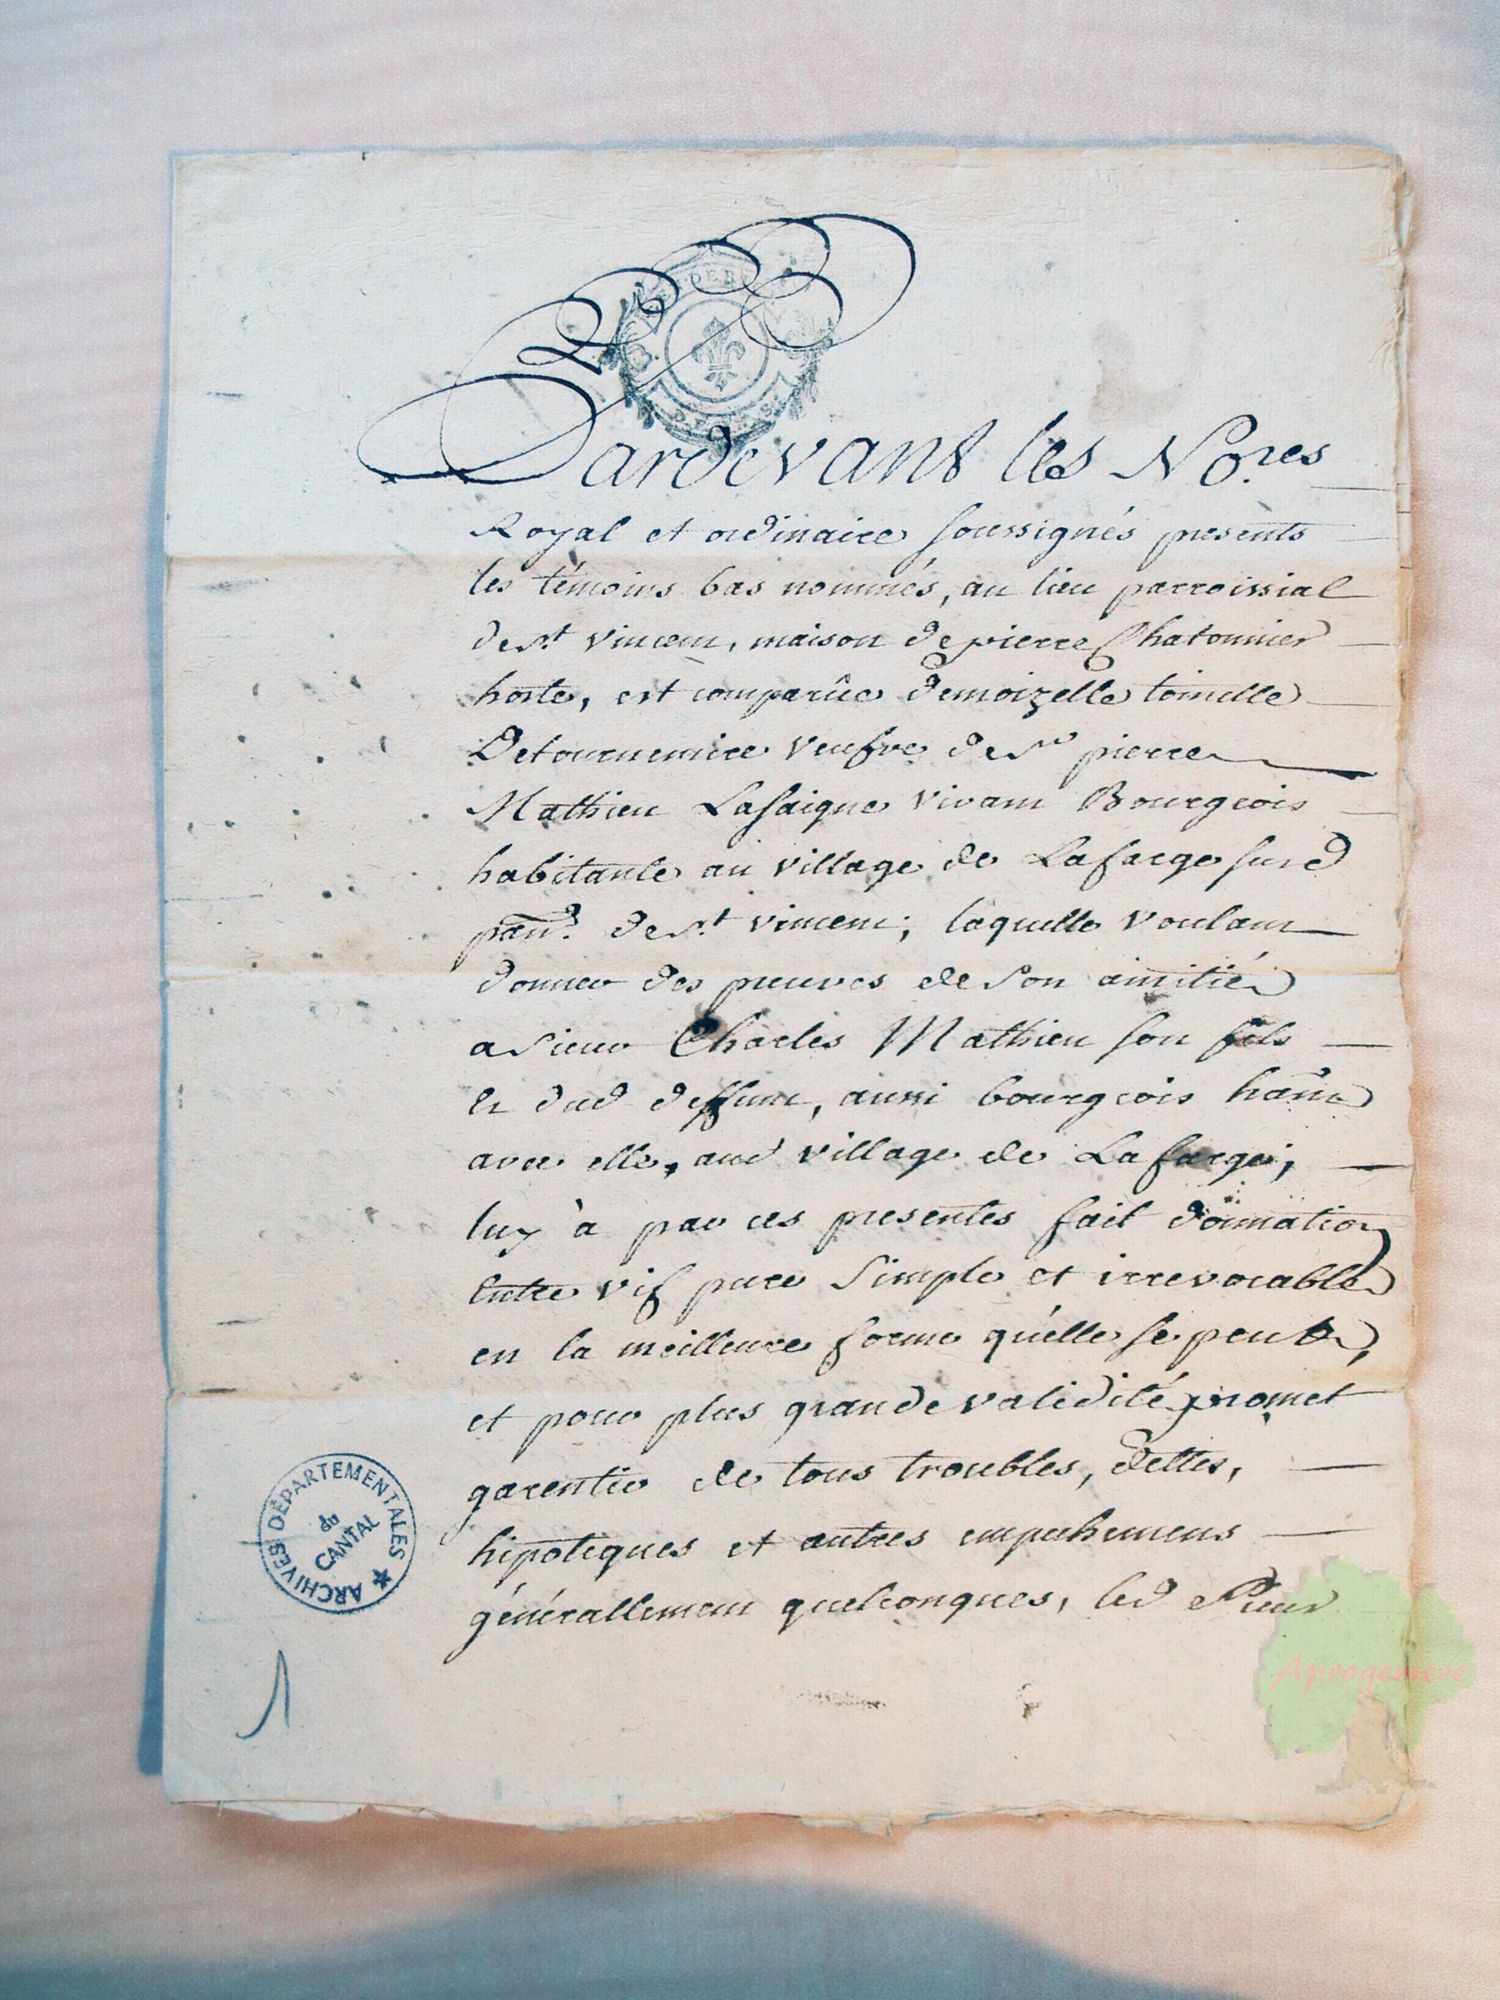 Pardevant les No.res
Royal et ordinaire soussignés presents
les témoins bas nommés, au lieu parroissial
de st vincent, maison de pierre Chatonnier
hoste, est comparûe demoizelle toinette
Detournemire veufve de sr pierre
Mathieu Lasaigne vivant Bourgeois
habitante au village de Lafarge surd
parr. de st vincent; laquelle voulant
donner des preuves de son amitié
a sieur Charles Mathieu son fils
et dud deffunt, aussi bourgeois hant
avec elle, aud village de Lafarge,
luy à par ces presentes fait donnation
entre vif pure simple et irrevocable
en la meilleure forme qu'elle se peut,
et pour plus grande validité promet
garentir de tous troubles, dettes,
hipoteques et autres empechemens
générallement quelconques, led sieur
ARCHIVES DÉPARTEMENTALES
du
CANTAL
1
Aprogemere